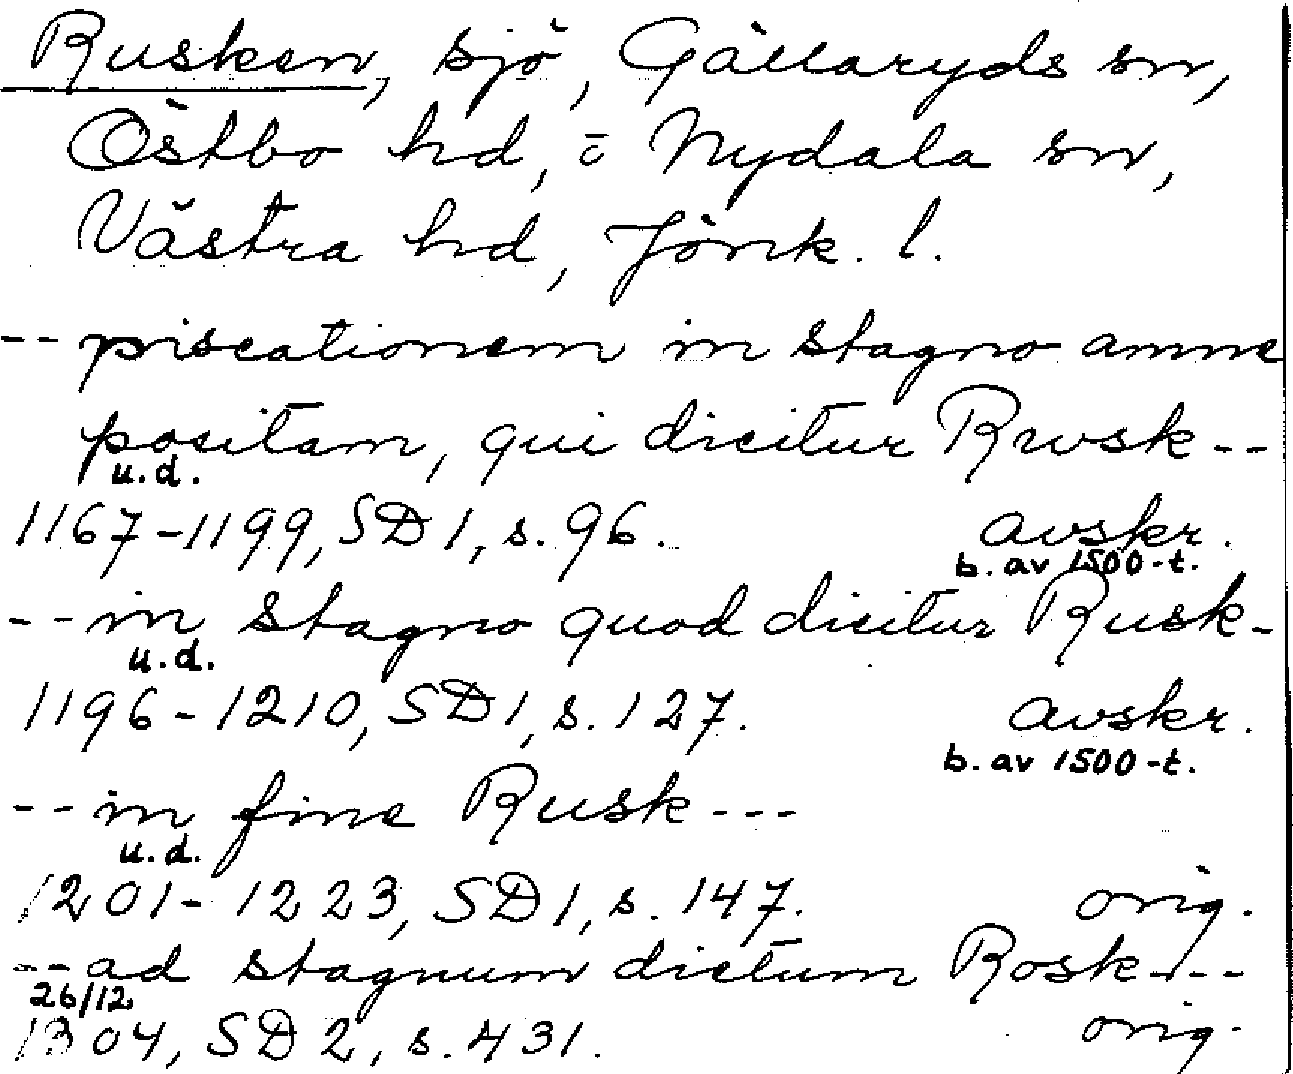 Rusken, sjö, Gällaryds sn,
Östbo hd, o Nydala sn,
Västra hd, Jönk. l.
-- piscationem in stagno amne
positam, qui dicitur Rwsk--
u.d.
1167-1199, SD 1, s. 96. avskr.
b. av 1500-t.
-- in stagno quod dicitur Rusk-
u.d.
1196-1210, SD 1, s. 127. avskr.
b. av 1500-t.
-- in fine Rusk ---
u.d.
1201-1223, SD 1, s. 147. orig.
-- ad stagnum dictum Rosk---
26/12
1304, SD 2, s. 431. orig.